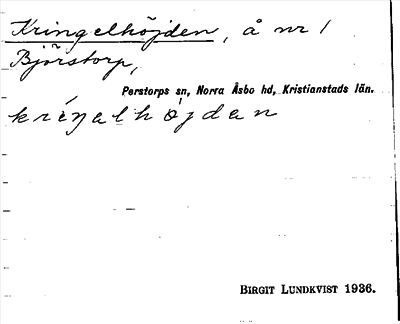 Kringelhöjden, å nr 1
Björstorp,
Perstorps sn, Norra Åsbo hd, Kristianstads län.
kríŋalhö̀jdan
BIRGIT LUNDKVIST 1936.